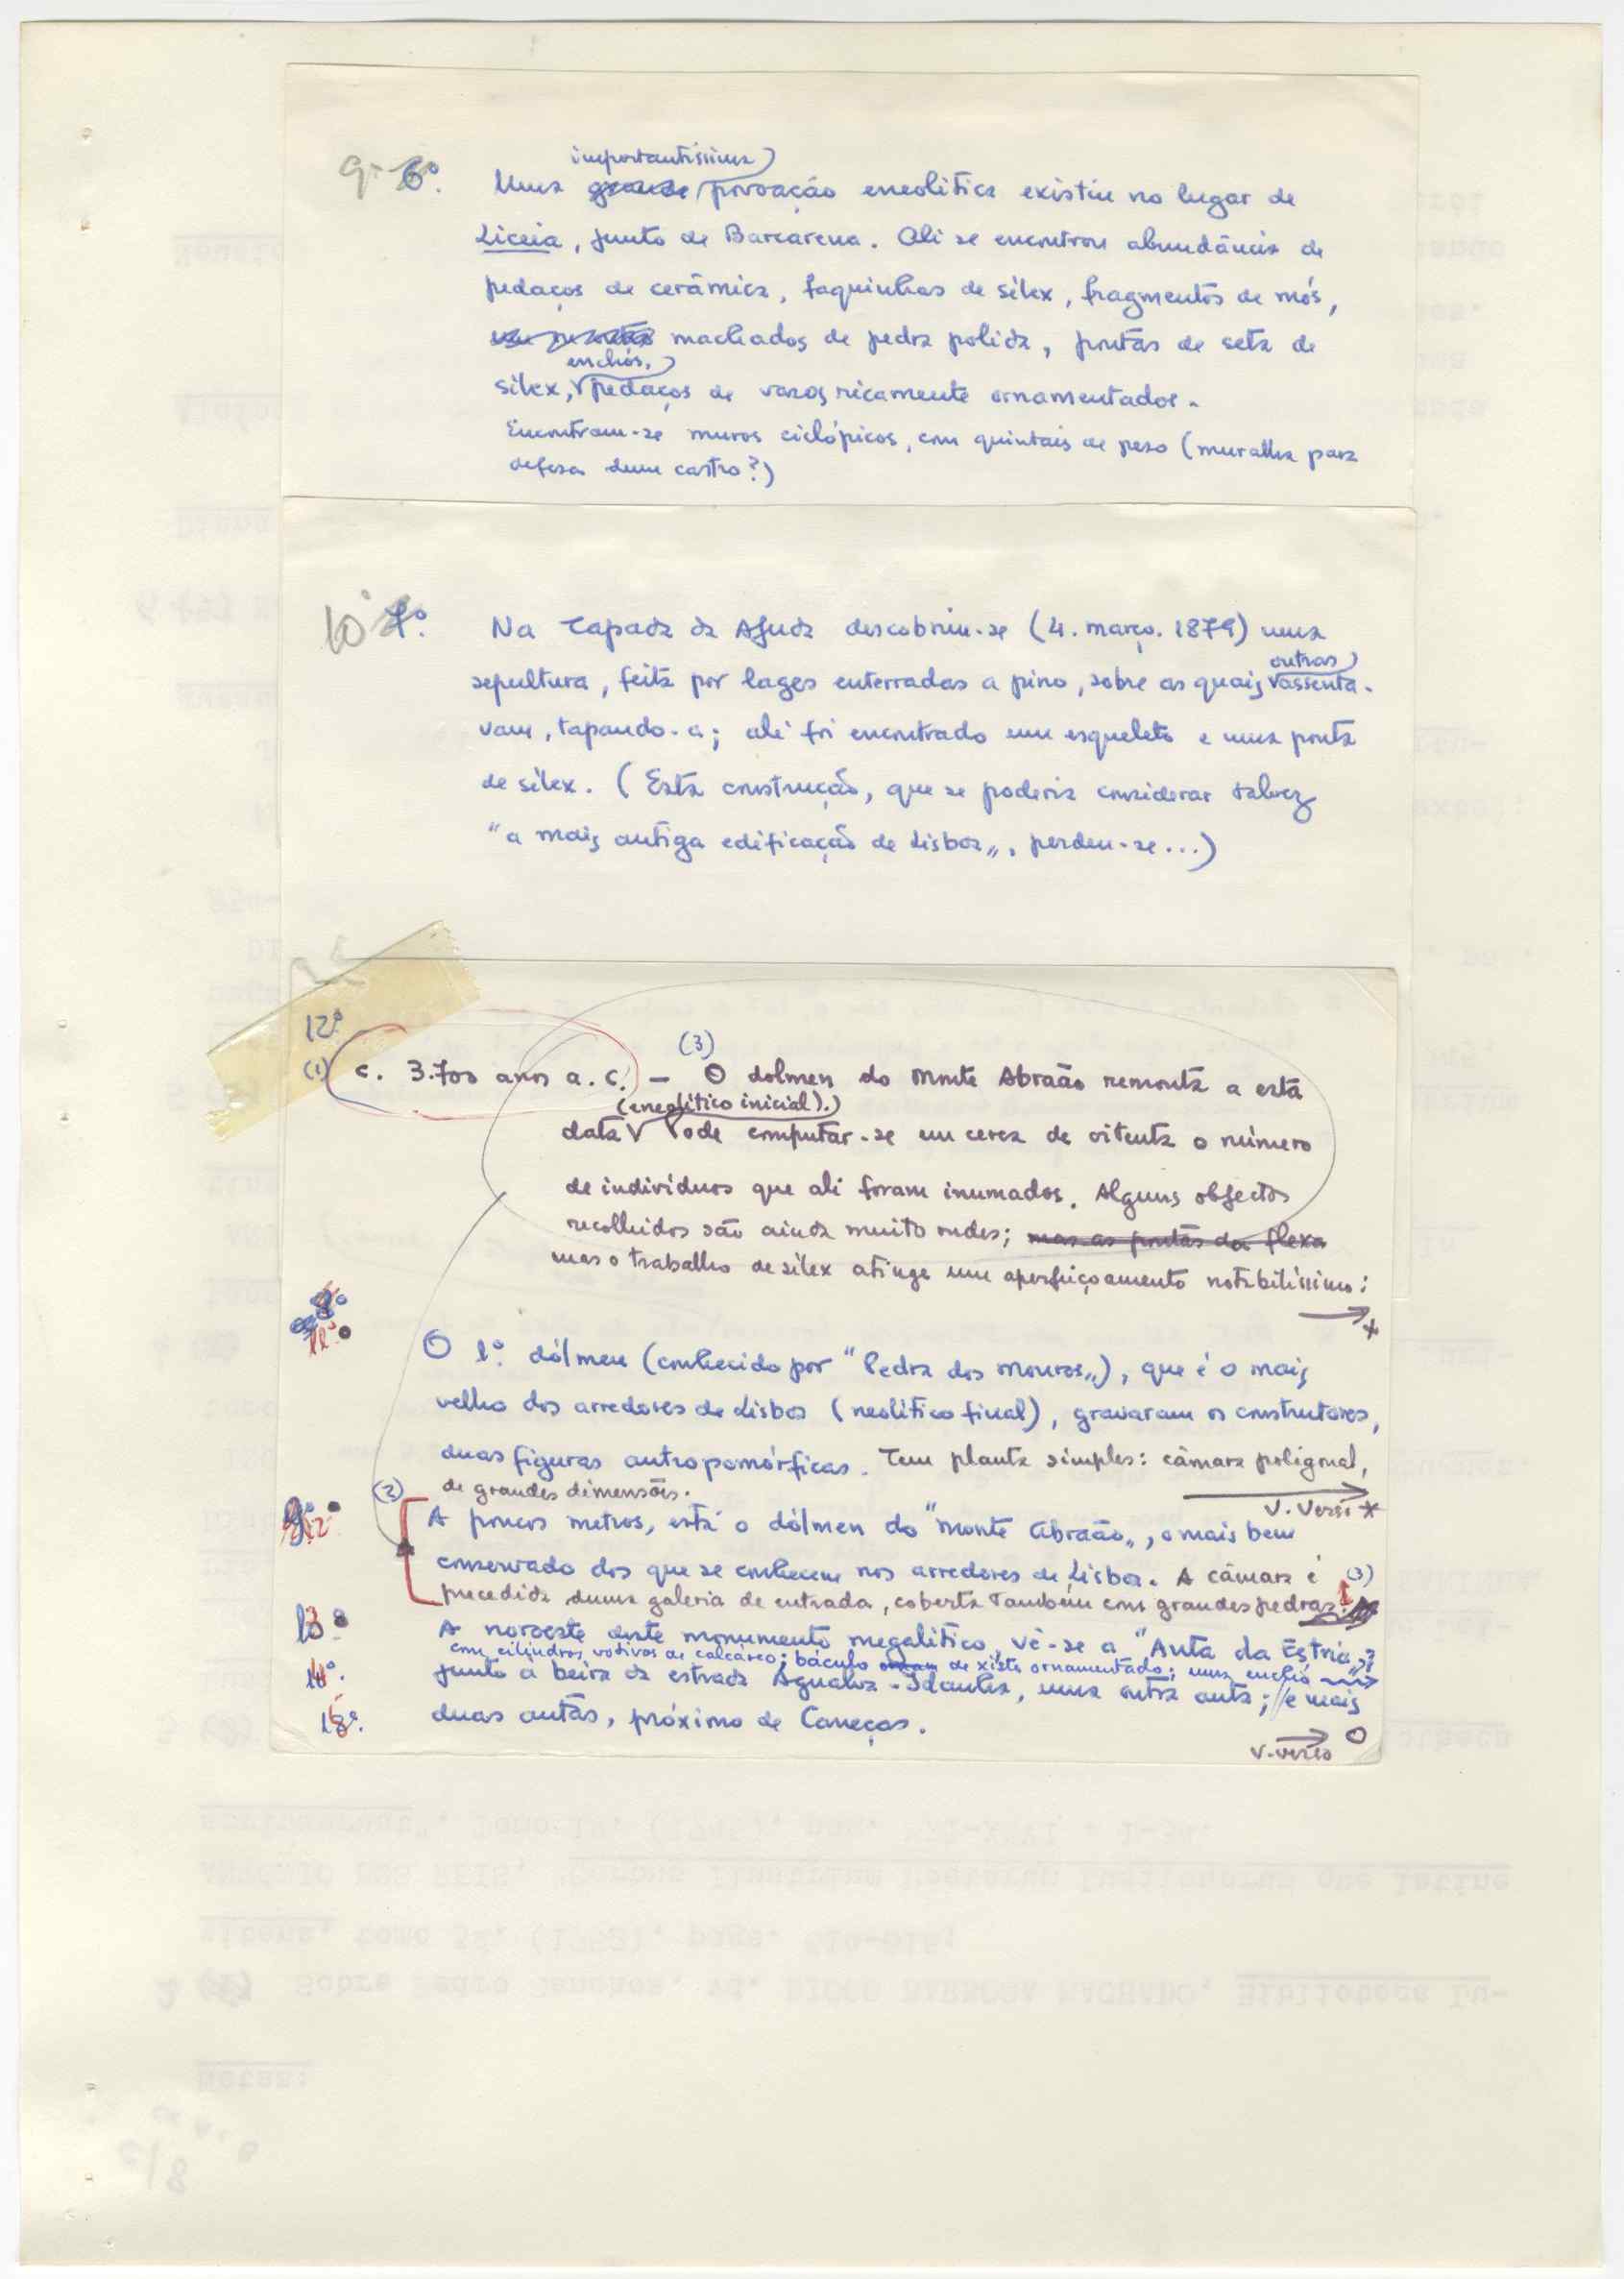 importantíssima)
9º 6º. Uma grande povoação eneolítica existiu no lugar de
Liceia, junto de Barcarena. Ali se encontrou abundância de
pedaços de cerâmica, faquinhas de sílex, fragmentos de mós,
machados de pedra polida, pontas de seta de
enchós,)
sílex, pedaços de vasos ricamente ornamentados.
Encontram-se muros ciclópicos, com quintais de peso (muralha para
defesa dum castro?)
10º 7º. Na Tapada da Ajuda descobriu-se (4. março. 1879) uma
outras)
sepultura, feita por lages enterradas a pino, sobre as quais assenta-
vam, tapando-a; ali foi encontrado um esqueleto e uma ponta
de sílex. (Esta construção, que se poderia considerar talvez
"a mais antiga edificação de Lisboa", perdeu-se...)
12º
(3)
(1) c. 3.700 anos a. C. — O dolmen do Monte Abraão remonta a esta
(eneolítico inicial).)
data Pode computar-se em cerca de oitenta o número
de indivíduos que ali foram inumados. Alguns objectos
recolhidos são ainda muito rudes; mas as pontas da flexa
mas o trabalho de sílex atinge um aperfeiçoamento notabilíssimo:
8º
11º
O 1º. dólmen (conhecido por "Pedra dos Mouros"), que é o mais
velho dos arredores de Lisboa (neolítico final), gravaram os construtores,
duas figuras antropomórficas. Tem planta simples: câmara poligonal,
de grandes dimensões.
V. Verso *
(2)
9º A poucos metros, está o dólmen do "Monte Abraão", o mais bem
conservado dos que se conhecem nos arredores de Lisboa. A câmara é (3)
precedida duma galeria de entrada, coberta também com grandes pedras.
13º A noroeste deste monumento megalítico, vê-se a "Anta da Estria",
com cilindros votivos de calcáreo; báculo de xisto ornamentado; uma enchó
14º. junto à beira da estrada Agualva-Idanha, uma outra anta; e mais
15º. duas antas, próximo de Caneças.
V. verso O